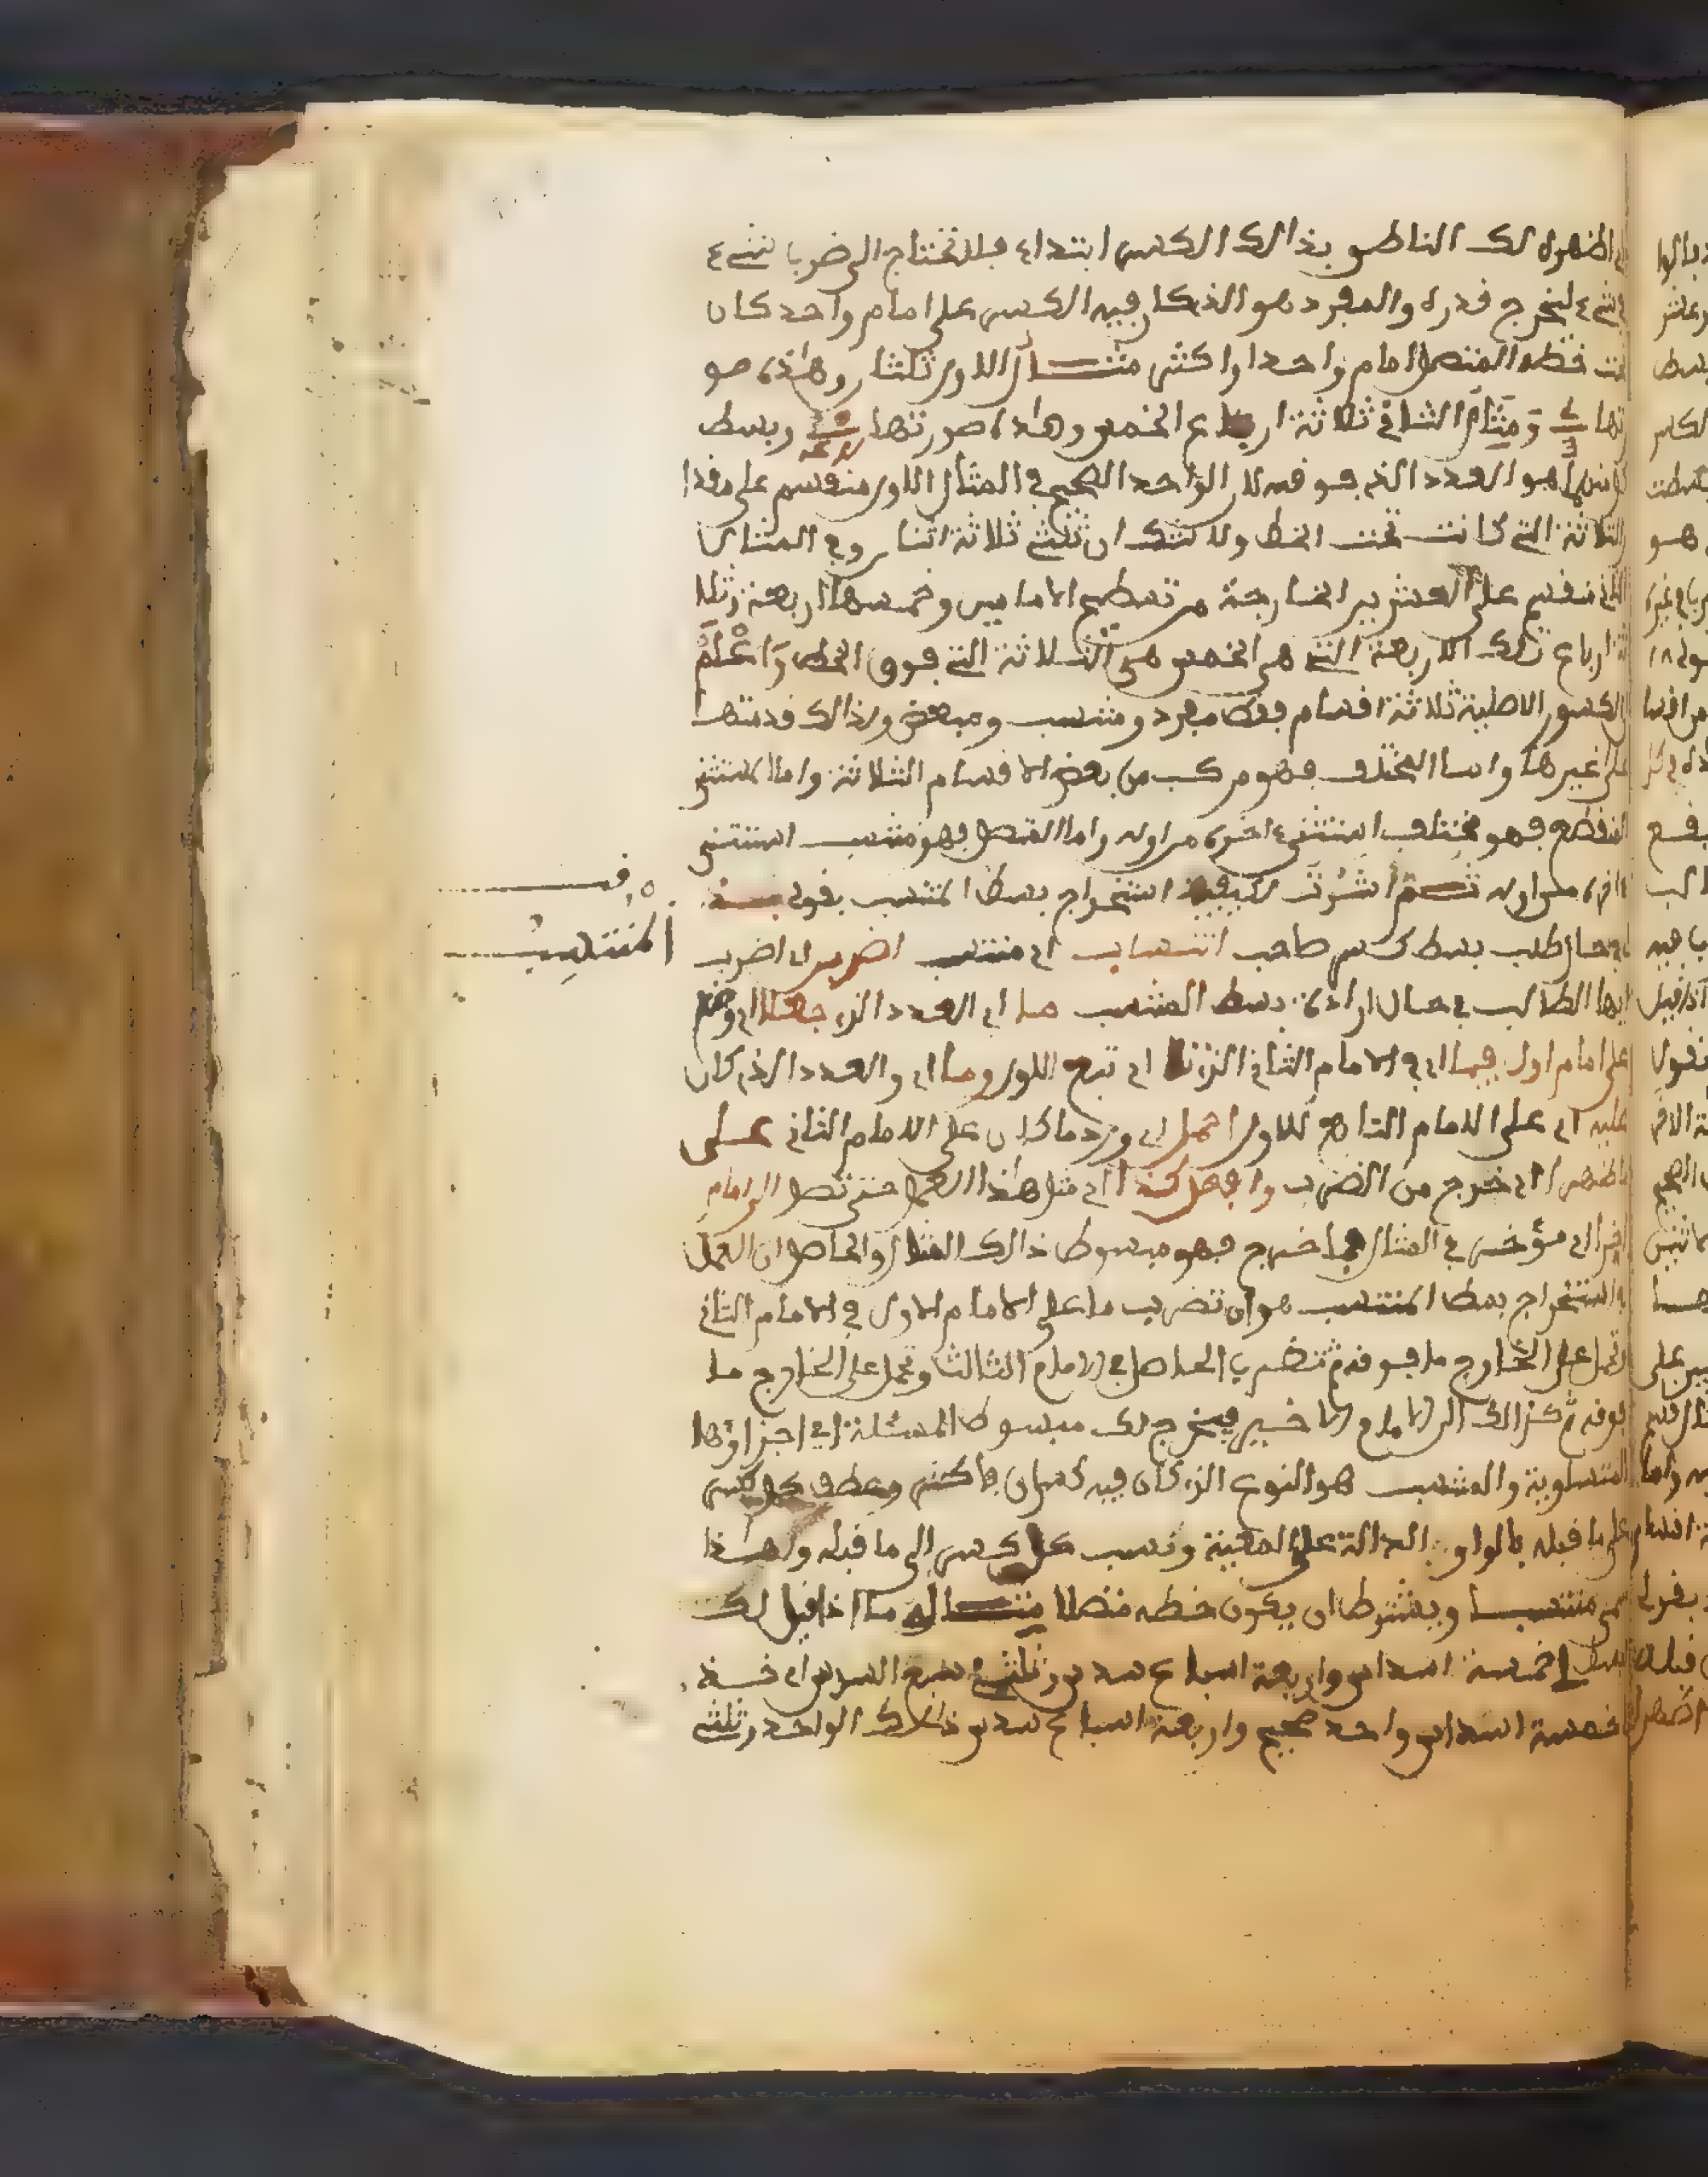 اظهره لك الناطق بذالك الكسر ابتداء فلا تحتاج الى ضرب شيء
في شيء ليخرج قدره والمفرد هو الذي كان فيه الكسر على امام واحد كان
تحت خطه المتصل امام واحدا او اكثر مثال الاول ثلثان وهذه صو
رتها ومثال الثاني ثلاثة ارباع الخمس وهذه صورتها وبسط
كل منهما هو العدد الذي فوقه لان الواحد الصحيح في المثال الاول منقسم على
الثلاثة التي كانت تحت الخط ولا شك ان ثلثي ثلاثة اثنان وفي المثال
الثاني منقسم على العشرين الخارجة من تسطيح الامامين وخمسها اربعة وثلا
ثة ارباع تلك الاربعة التي هي الخمس هي الثلاثة التي فوق الخط واعلم
ان الكسور الاصلية ثلاثة اقسام فقط مفرد ومنتسب ومبعض ولذالك قدمتها
على غيرها واما المختلف فهو مركب من بعض الاقسام الثلاثة واما المستثنى
المنقطع فهو مختلف استثني اخره من اوله واما المتصل فهو منتسب استثني
اخره من اوله ثم اشرت لكيفية استخراج بسط المنتسب بقولي
المنتسب
في حال طلب بسط كسر صاحب انتساب اي منتسب اضربن اي اضرب
ايها الطالب في حال ارادة بسط المنتسب ما اي العدد الذي جعلا اي وضع
على امام اول فيما اي في الامام الثاني الذي تلا اي تبع الاول وما اي والعدد الذي كان
عليه اي على الامام التابع للاول احمل اي وزد ما كان على الامام الثاني على
ما ظهر اي خرج من الضرب وافعل كذا اي مثل هذا العمل حتى تصل الى امام
اخير اي مؤخر في المثال فما خرج فهو مبسوط ذالك المثال والحاصل ان العمل
في استخراج بسط المنتسب هو ان تضرب ما على الامام الاول في الامام الثاني
وتحمل على الخارج ما فوقه ثم تضرب الحاصل في الامام الثالث وتحمل على الخارج ما
فوقه ثم كذالك الى الامام الاخير فيخرج لك مبسوط المسئلة اي اجزاؤها
المتساوية والمنتسب هو النوع الذي كان فيه كسران فاكثر وعطف كل كسر
على ما قبله بالواو الدالة على المعية ونسب كل كسر الى ما قبله ولهذا
سمي منتسبا ويشترط ان يكون خطه متصلا مثاله ما اذا قيل لك
ابسط لي خمسة اسداس واربعة اسباع سدس وثلثي سبع السدس اي خذ
خمسة اسداس واحد صحيح واربعة اسباع سدس ذالك الواحد وثلثي